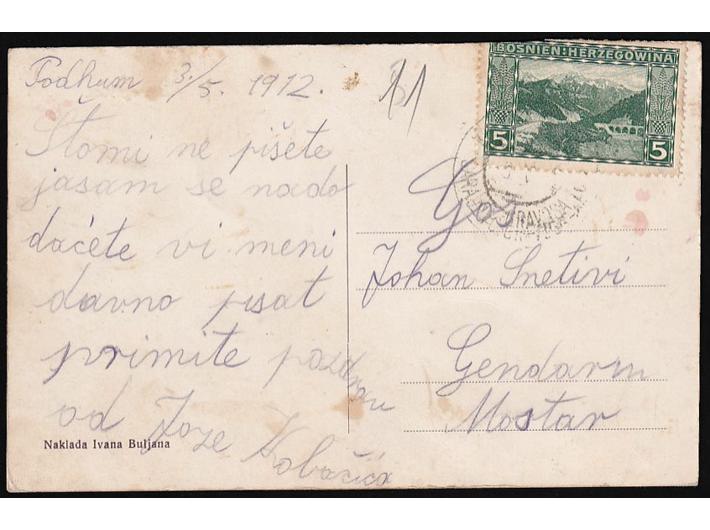 Podhum 3/5. 1912.
11
Štomi ne pišete
jasam se nado
daćete vi meni
davno pisat
primite pozdrav
od Joze
Naklada Ivana Buljana
BOSNIEN:HERZEGOWINA
5 5
Johan Snetivi
Gendarm
Mostar